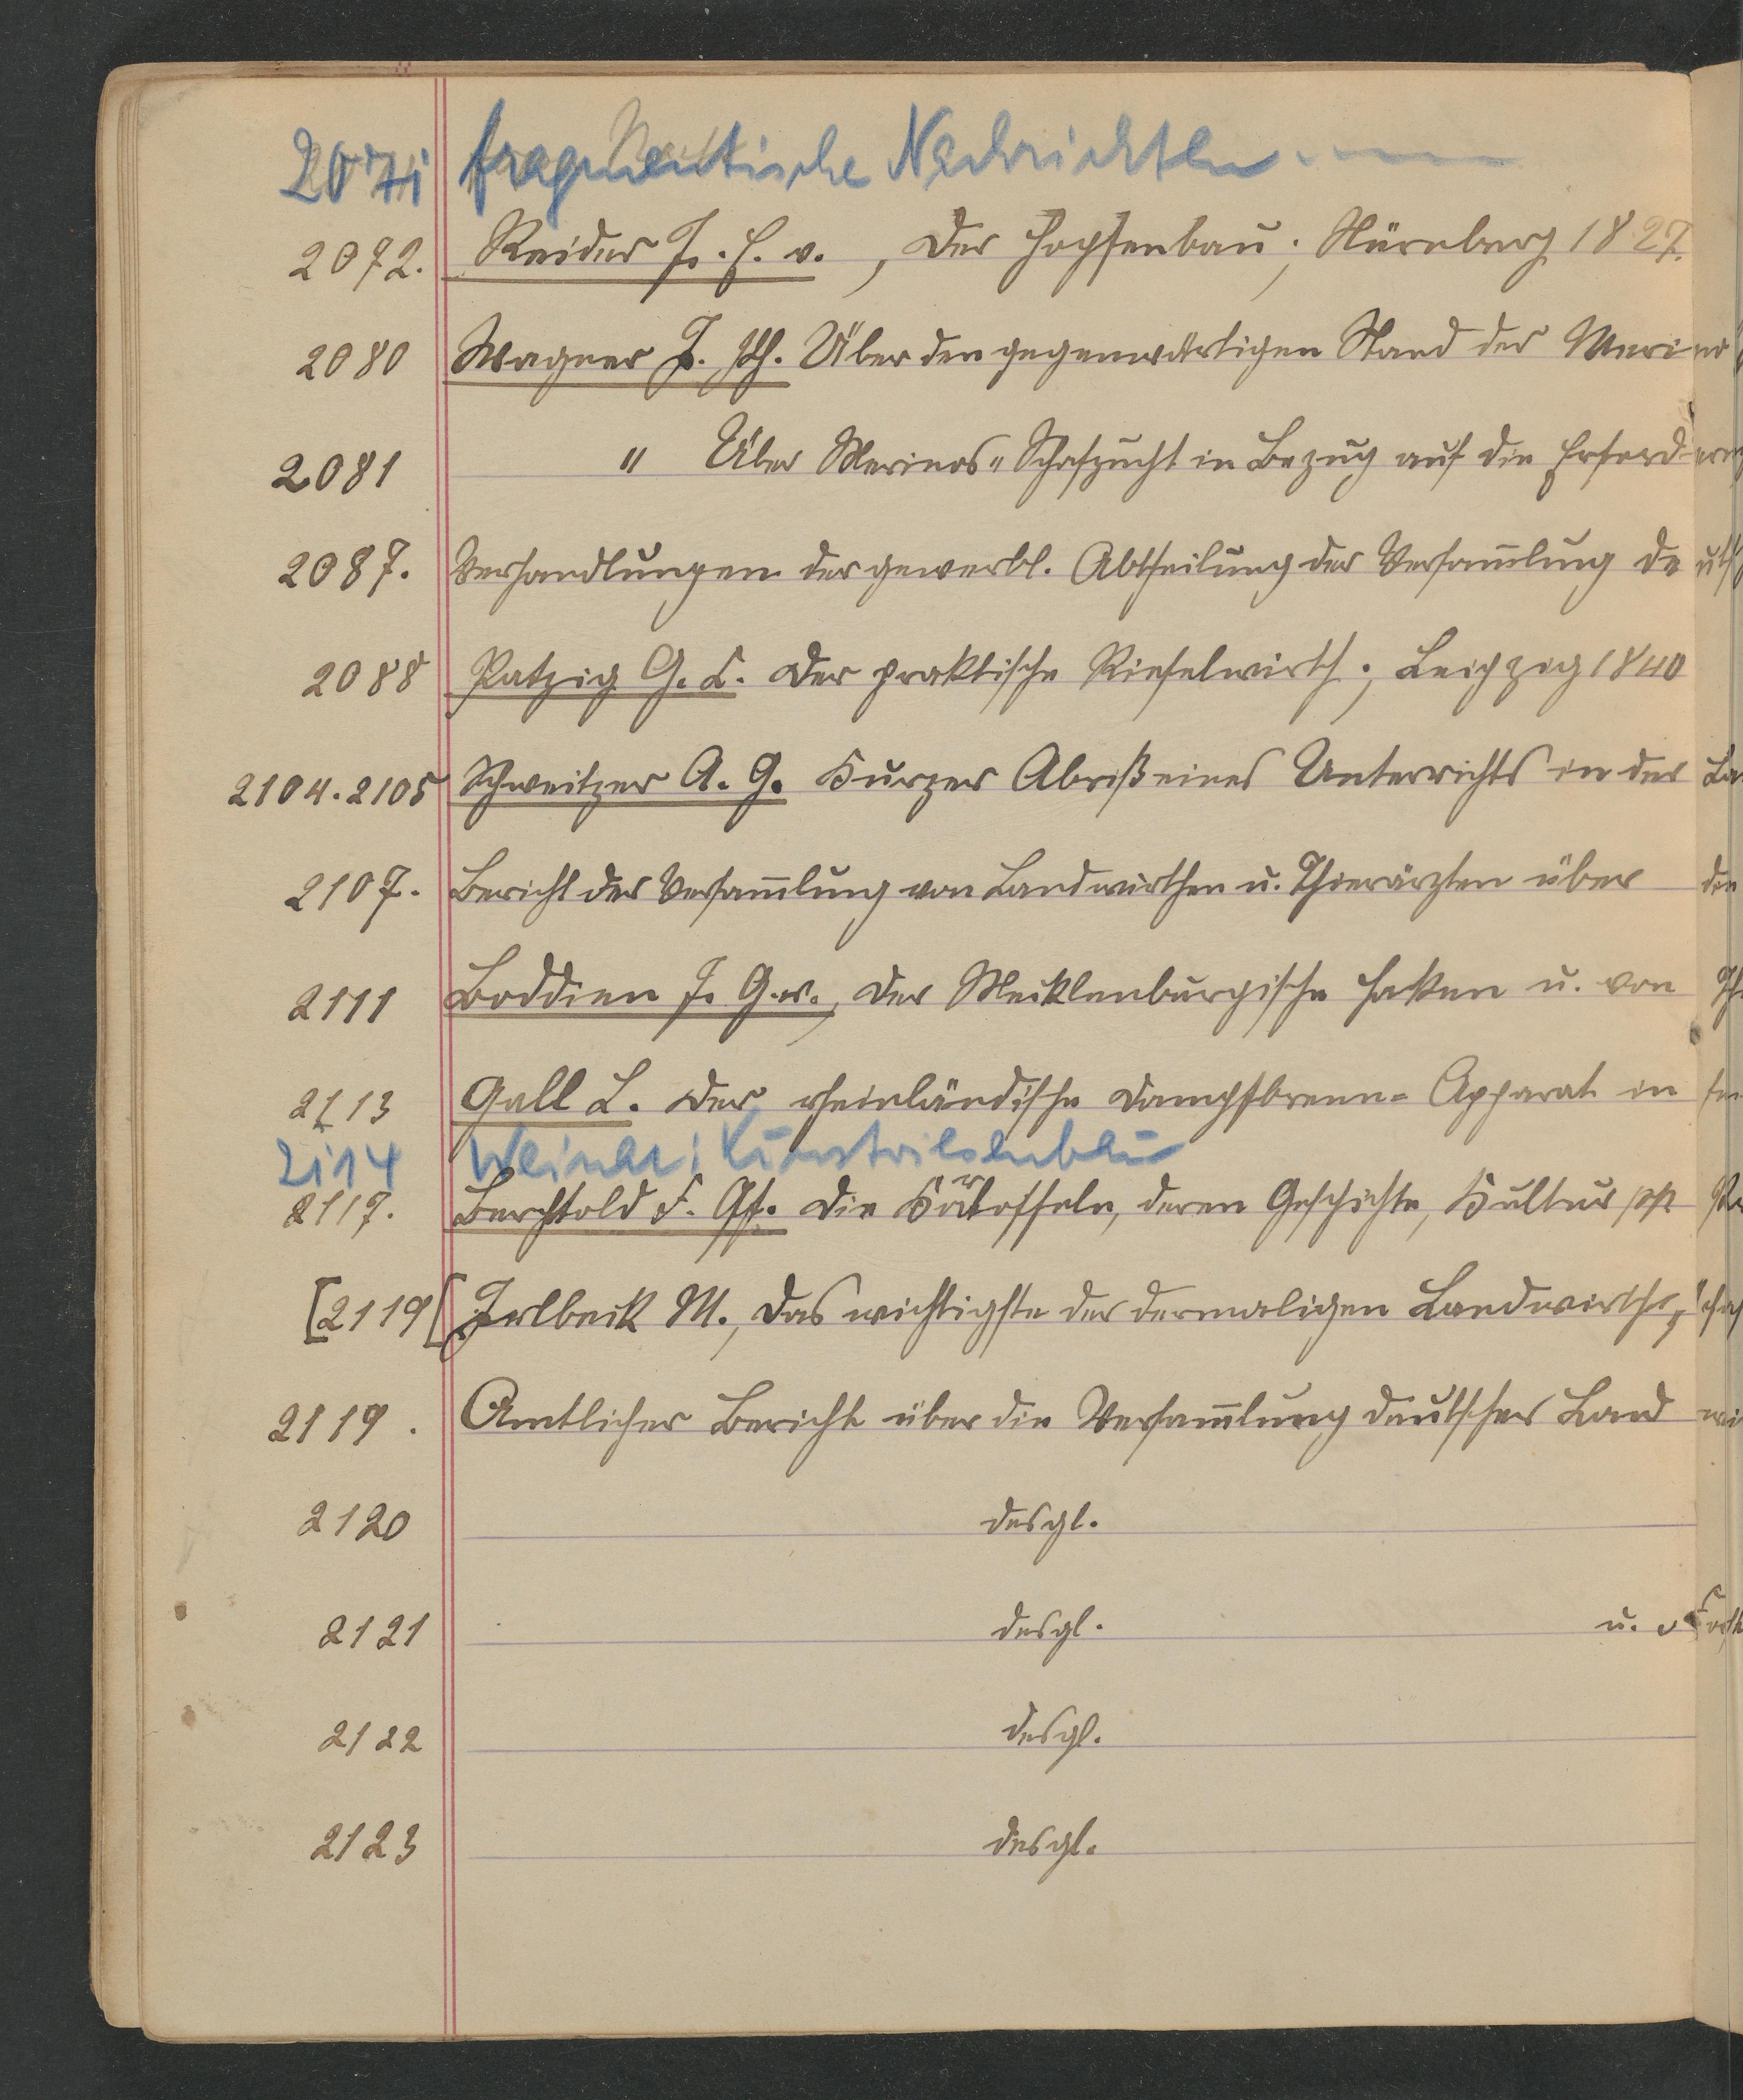 2071 fragmentische Nachrichten
2072. Reider J. E. v. , Der Hopfenbau; Nürnberg 1827.
2080 Wagner J. Ph. Über den gegenwärtigen Stand der Merino
2081 " Über Merinos-Schafzucht in Bezug auf die Erford
2087. Verhandlungen der gewerbl. Abtheilung der Versam̄lung de
2088 Patzig G. C. Der praktische Rieselwirth; Leipzig 1840
2104.2105 Schweitzer A. G. Kurzer Abriß eines Unterrichts in der La
2107. Bericht der Versam̄lung von Landwirthen u. Thierärzten über
2111 Boddien J. G. v., Der Mecklenburgische Haken u. von
2113 Gall L. Der rheinländische Dampfbrenn-Apparat in
2114 Kunstwiesenbau
2117. Berchtold F. Gf. Die Kartoffeln, deren Geschichte, Kultur pp
[2119] Irlbeck M., Das wichtigste der dermaligen Landwirths
2119. Amtlicher Bericht über die Versam̄lung deutscher Land
2120 desgl.
2121 desgl. u.
2122 desgl.
2123 desgl.